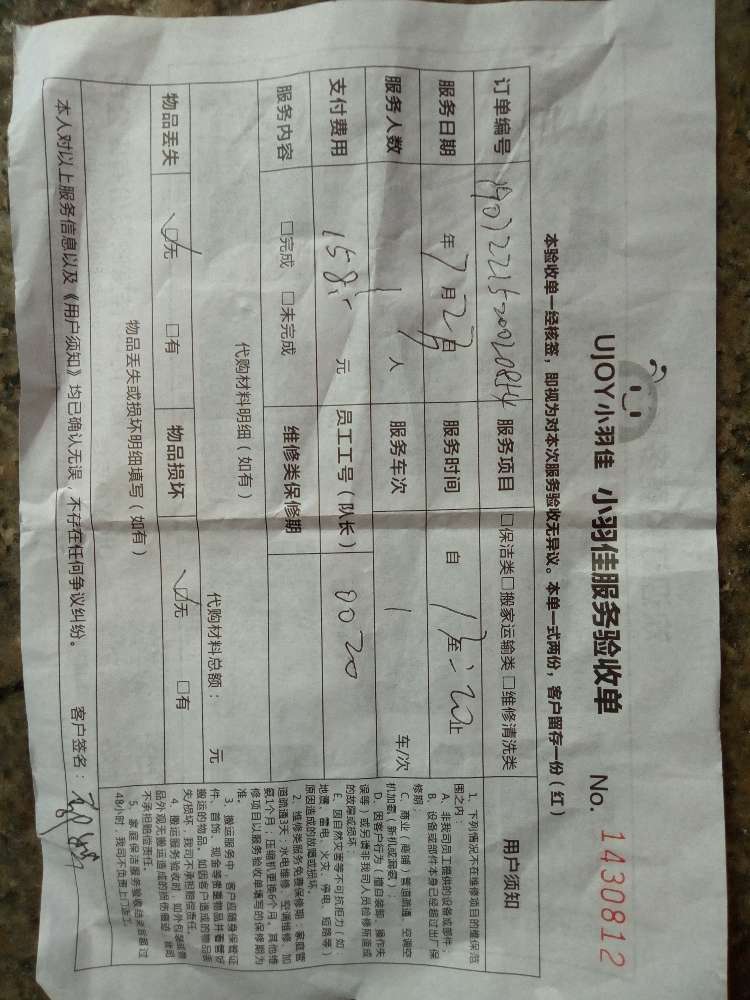 UJOY小羽佳 小羽佳服务验收单 No. 1430812
本验收单一经核签，即视为对本次服务验收无异议。本单一式两份，客户留存一份（红）
订单编号 服务项目 □保洁类□搬家运输类 □维修清洗类
服务日期 年 7 月 27 日 服务时间 自 至 止
服务人数 1 人 服务车次 1 车/次
支付费用 元 员工工号（队长） 0020
服务内容 □完成 □未完成 维修类保修期
代购材料明细（如有） 代购材料总额： 元
物品丢失 ☑无 □有 物品损坏 ☑无 □有
物品丢失或损坏明细填写（如有）
本人对以上服务信息以及《用户须知》均已确认无误，不存在任何争议纠纷。 客户签名：
用户须知
1、下列情况不在维修项目的售保范
围之内：
A、非我司员工提供的设备或部件；
B、设备或部件本身已经超过出厂保
修期；
C、商业（商铺）管道疏通、空调空
机加氨（新机或漏氨）；
D、因客户行为（擅自装卸、操作失
误等）或另请非我司人员检修所造成
的故障或损坏
E、因自然灾害等不可抗拒力（如：
地震、雷电、火灾、停电、短路等）
原因造成的故障或损坏。
2、维修类服务免费保修期：家庭管
道疏通3天；水电维修、空调维修、加
氨1个月；压缩机更换6个月。其他维
修项目以服务验收单填写的保修期为
准。
3、搬运服务中，客户应随身保管证
件、首饰、现金等贵重物品并看管好
搬运的物品。如因客户造成的物品丢
失/损坏，我司不承担赔偿责任。
4、搬运服务验收时，如外包装或者
品外观无搬运造成的损伤痕迹，我司
不承担赔偿责任。
5、家庭保洁服务验收结束后超过
48小时，我司不负责上门返工。